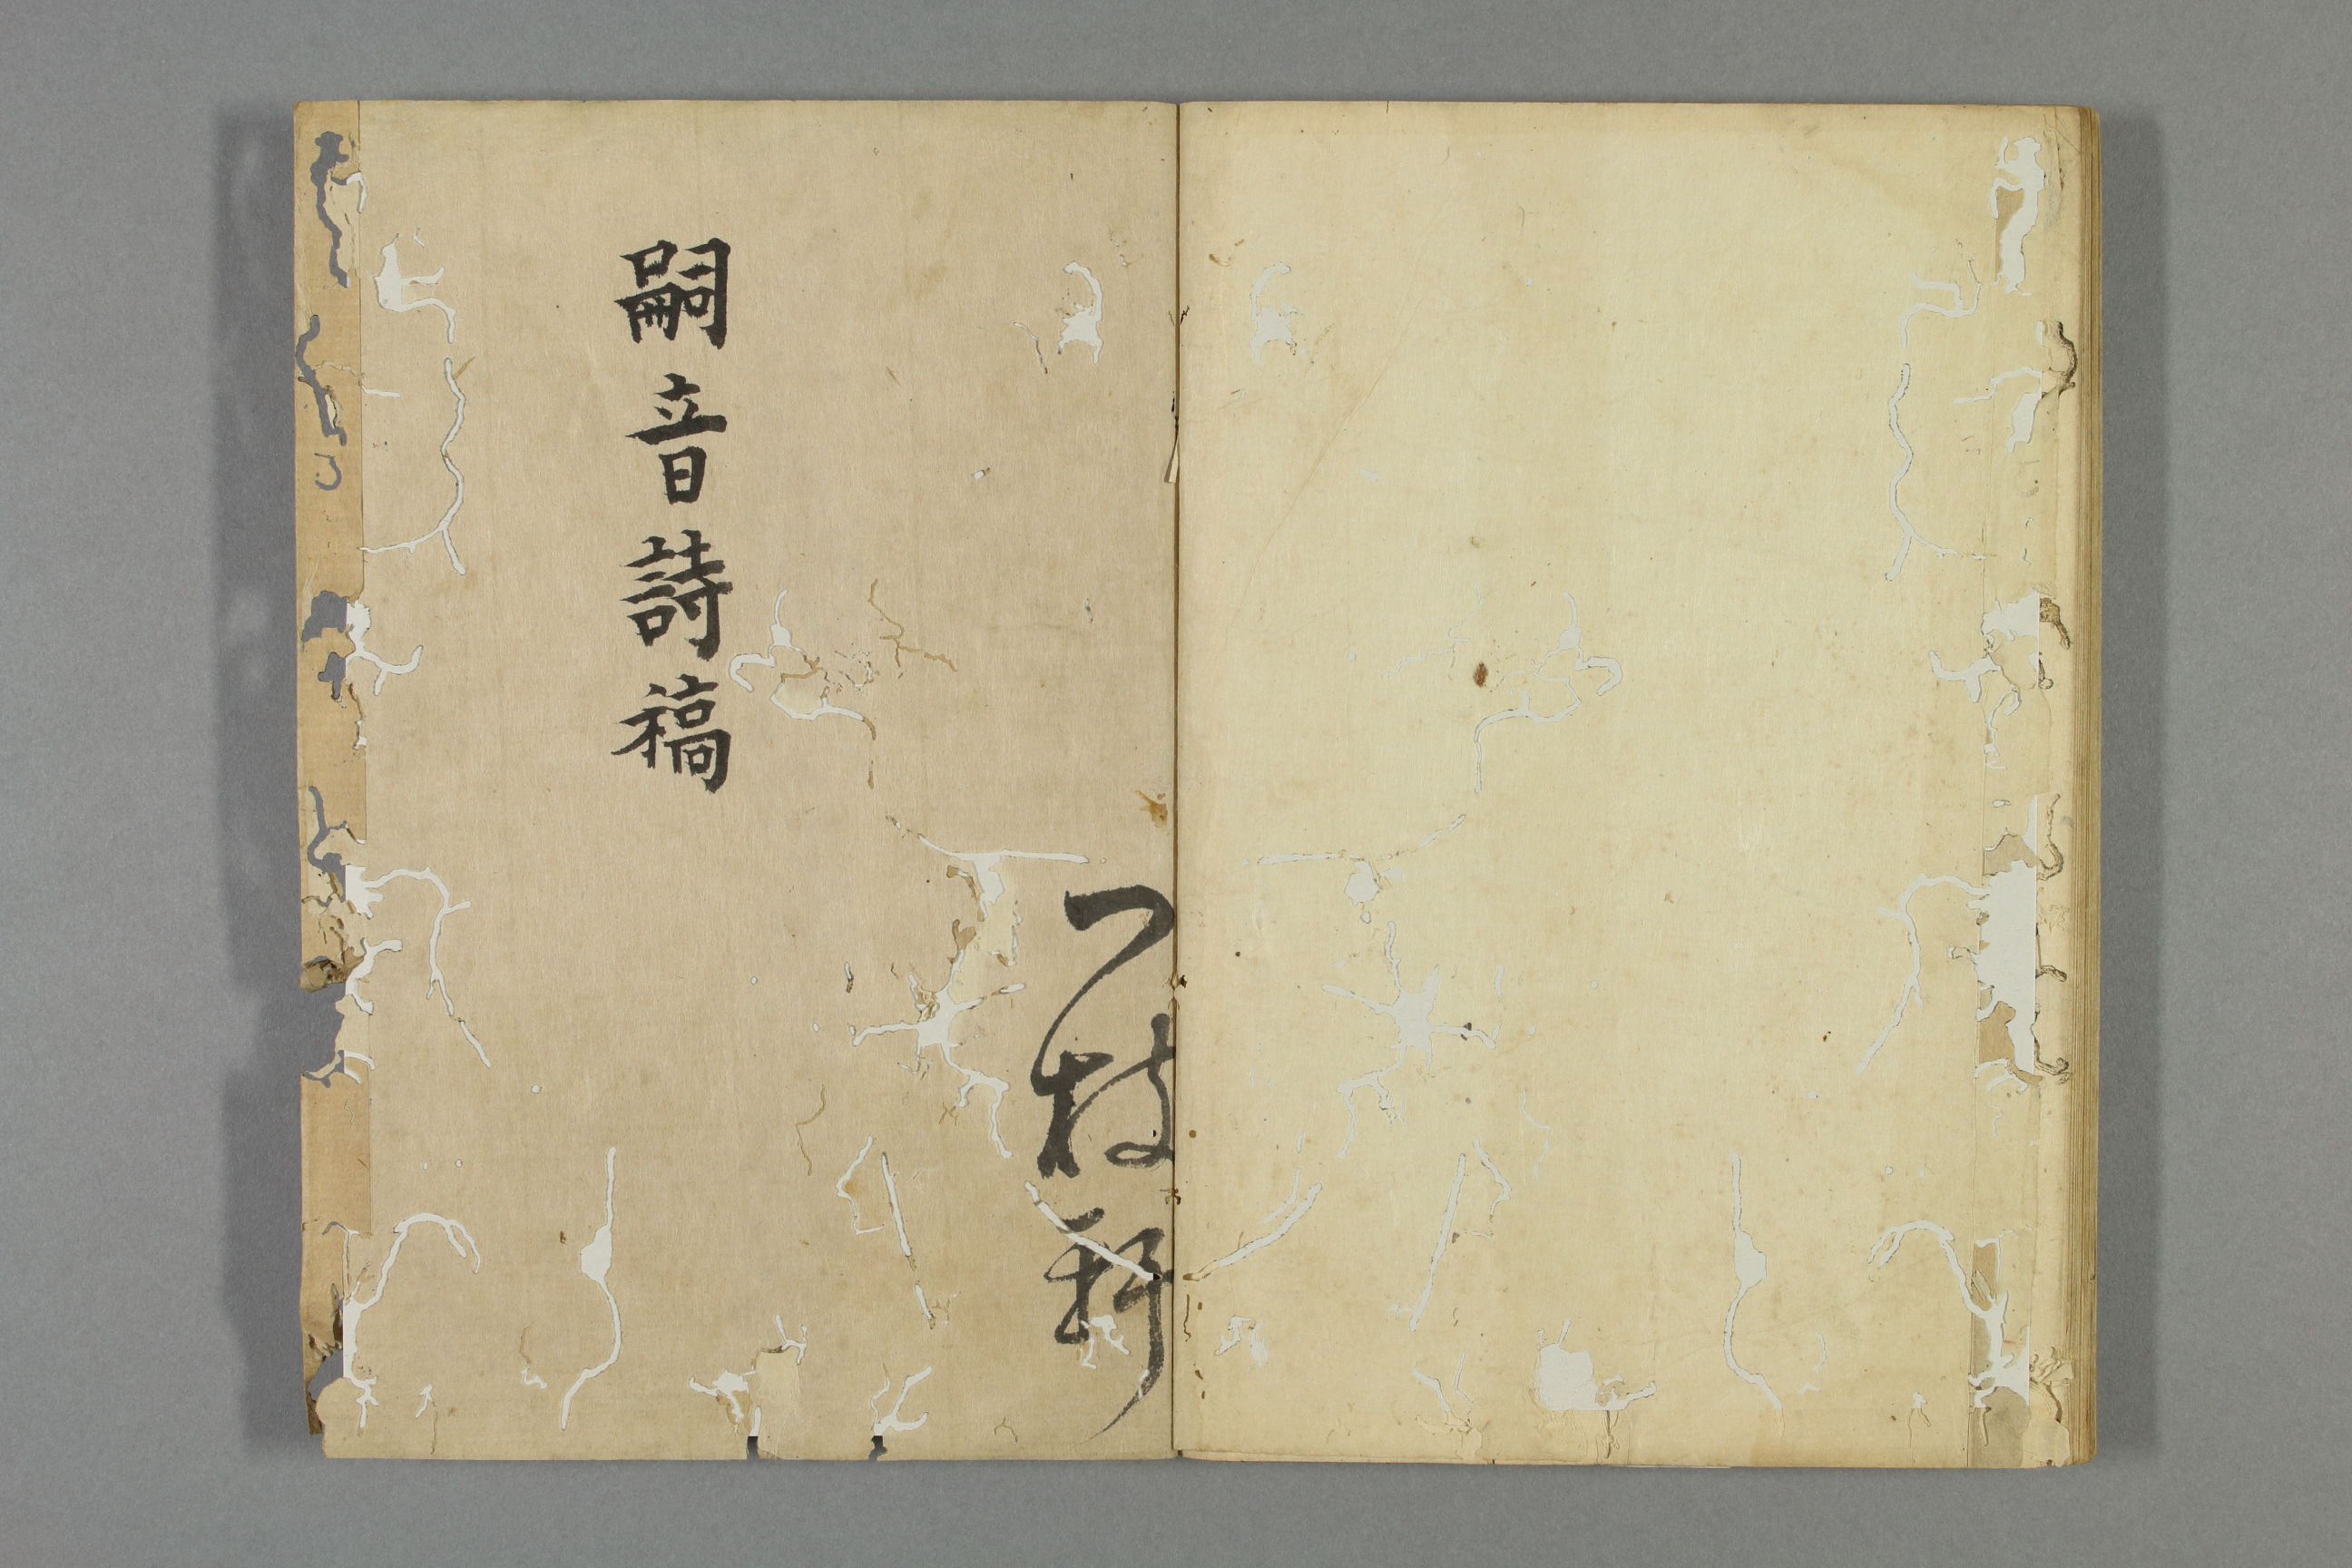 一枝軒
嗣音詩稿